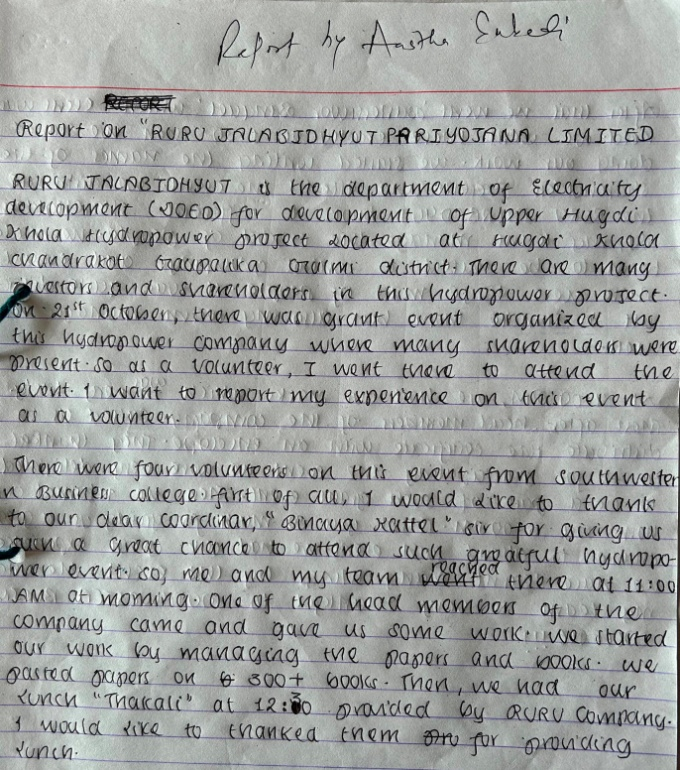 Report by Aastha Subedi
Report on "RURU JALABIDHYUT PARIYOJANA LIMITED
RURU JALABIDHYUT is the department of Electricity
development (DOED) for development of Upper Hugdi
Khola Hydropower project Located at Hugdi Khola
chandrakot Gaupalika Gulmi district. There are many
investors and shareholders in this hydropower project.
On 21st October, there was grant event organized by
this hydropower company where many shareholders were
present. so as a volunteer, I went there to attend the
event. I want to report my experience on this event
as a volunteer.
There were four volunteers on this event from southwester
n Business college. first of all, I would like to thanks
to our dear coordinar, "Binaya Kattel" sir for giving us
such a great chance to attend such greatful hydropo-
wer event. so, me and my team reached there at 11:00
AM at morning. one of the head members of the
company came and gave us some work. we started
our work by managing the papers and books. we
pasted papers on 300+ books. Then, we had our
lunch "Thakali" at 12:30 provided by RURU company.
I would like to thanked them for providing
lunch.